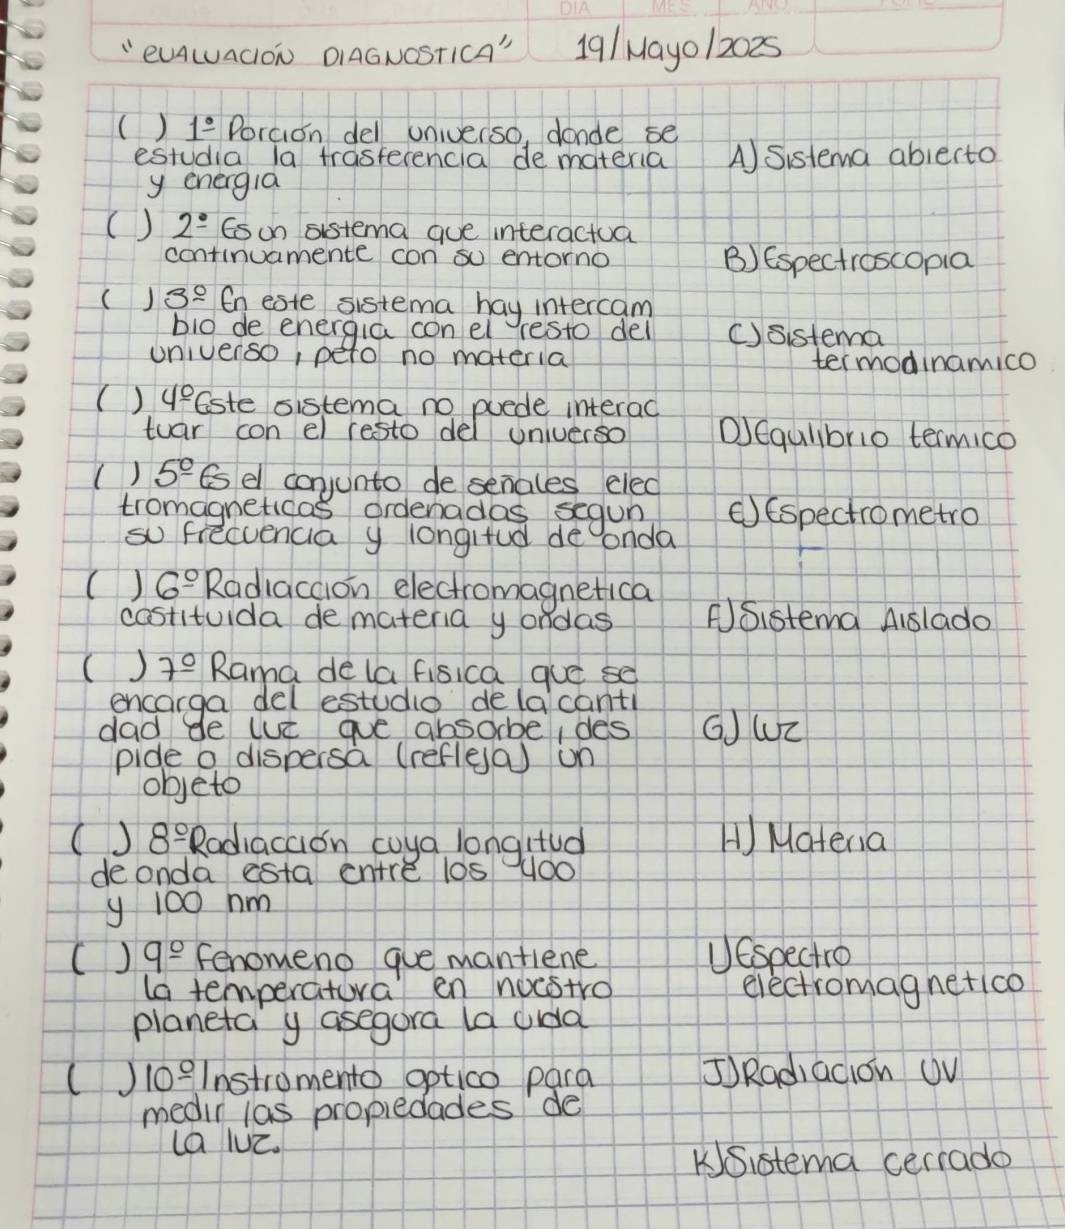 DIA MES AÑO FOLIO
"EVALUACIÓN DIAGNOSTICA" 19/Mayo/2025
( ) 1º Porción del universo, donde se
estudia la trasferencia de materia
y energia
A) Sistema abierto
( ) 2º Es un sistema que interactua
continuamente con su entorno
B) Espectroscopia
( ) 3º En este sistema hay intercam
bio de energia con el resto del
universo, pero no materia
C) Sistema
termodinamico
( ) 4º Este sistema no puede interac
tuar con el resto del universo
D) Equilibrio termico
( ) 5º Es el conjunto de señales elec
tromagneticas ordenadas segun
su frecuencia y longitud de onda
E) Espectrometro
( ) 6º Radiacción electromagnetica
costituida de materia y ondas
F) Sistema Aislado
( ) 7º Rama de la fisica que se
encarga del estudio de la canti
dad de luz que absorbe, des
pide o dispersa (refleja) un
objeto
G) luz
( ) 8º Radiacción cuya longitud
de onda esta entre los 400
y 100 nm
H) Materia
( ) 9º fenomeno que mantiene
la temperatura en nuestro
planeta y asegura la vida
I) Espectro
electromagnetico
( ) 10º Instrumento optico para
medir las propiedades de
la luz.
J) Radiación UV
K) Sistema cerrado